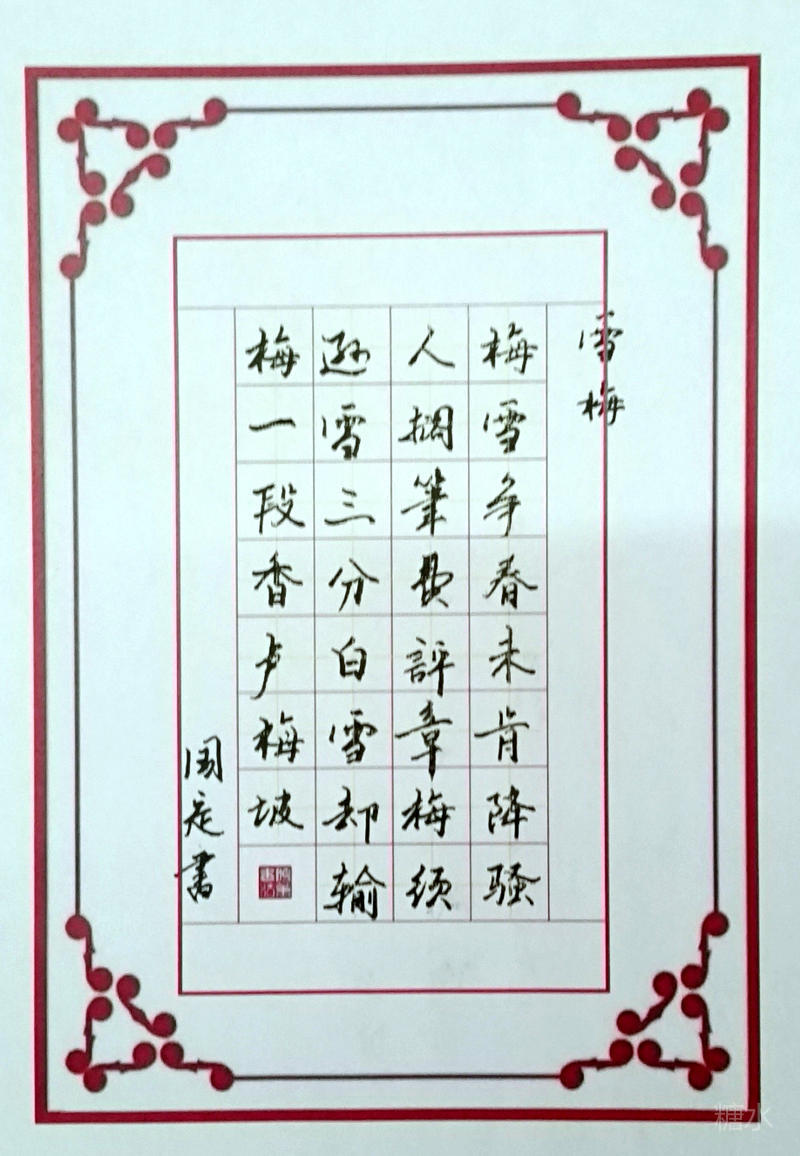 雪梅
梅雪争春未肯降骚
人搁筆费評章梅须
逊雪三分白雪却输
梅一段香卢梅坡
国定书
糖水